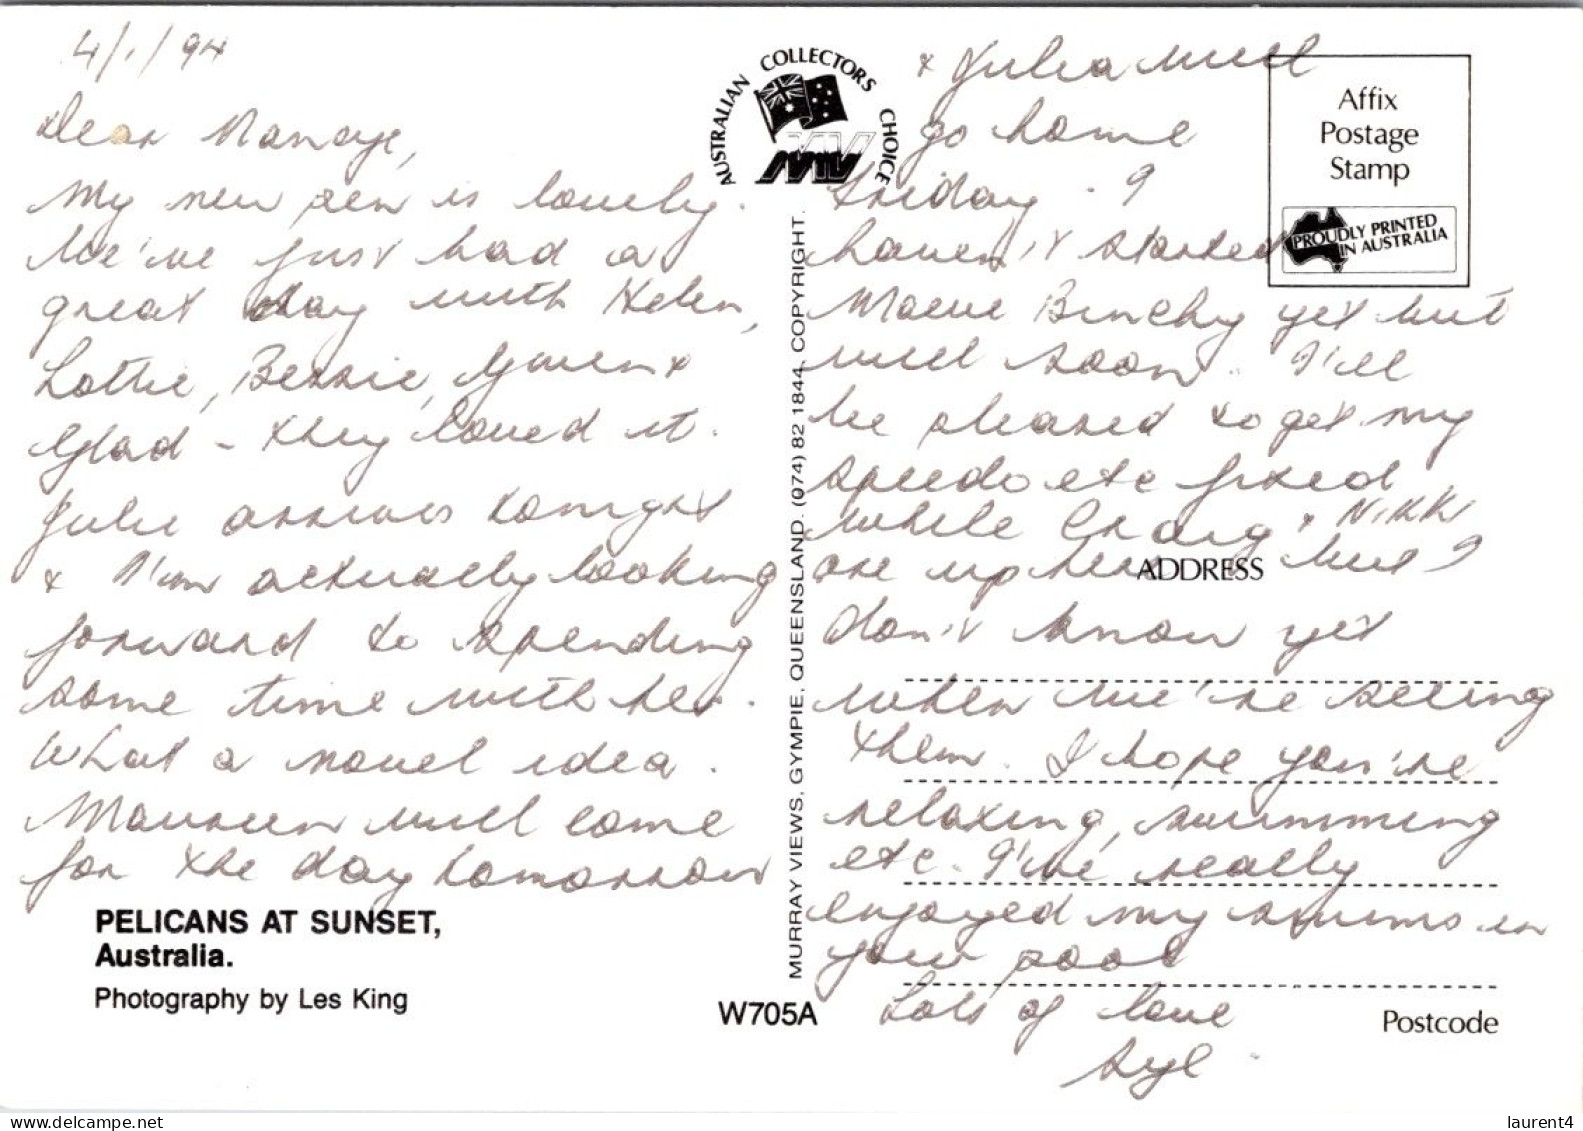 4/1/94
Dear Nanaye,
My new pen is lovely.
We've just had a
great day with Helen,
Lottie, Bessie, Gwen &
Glad - they loved it.
Julie arrives tonight
& I'm actually looking
forward to spending
some time with her.
What a novel idea.
Maureen will come
for the day tomorrow
PELICANS AT SUNSET,
Australia.
Photography by Les King
AUSTRALIAN COLLECTORS CHOICE
MV
MURRAY VIEWS, GYMPIE, QUEENSLAND. (074) 82 1844. COPYRIGHT.
W705A
& Julia will
go home
Friday. I
haven't started
Maeve Binchy yet but
will soon. I'll
be pleased to get my
speedo etc fixed
while Craig & Nikki
are up here but I
don't know yet
when we're seeing
them. I hope you're
relaxing, swimming
etc. I've really
enjoyed my swims in
your pool
Lots of love
Syl
Affix
Postage
Stamp
PROUDLY PRINTED
IN AUSTRALIA
ADDRESS
Postcode
laurent4